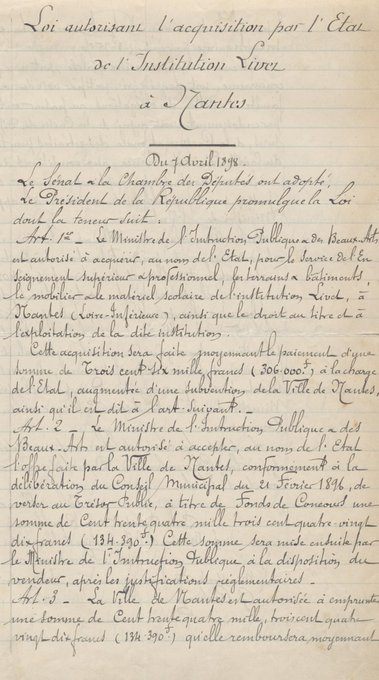 Loi autorisant l'acquisition par l'Etat
de l'Institution Livet
à Nantes
Du 7 Avril 1898.
Le Sénat & la Chambre des Députés ont adopté,
Le Président de la République promulgue la Loi
dont la teneur suit :
Art. 1er _ Le Ministre de l'Instruction Publique & des Beaux-Arts
est autorisé à acquérir, au nom de l'Etat, pour le service de l'En
seignement supérieur & professionnel, les terrains & bâtiments,
le mobilier & le matériel scolaire de l'institution Livet, à
Nantes (Loire-Inférieure), ainsi que le droit au titre et à
l'exploitation de la dite institution.
Cette acquisition sera faite moyennant le paiement d'une
somme de Trois cent six mille francs (306.000f) à la charge
de l'Etat, augmentée d'une subvention de la Ville de Nantes,
ainsi qu'il est dit à l'art. suivant. _
Art. 2 _ Le Ministre de l'Instruction Publique & des
Beaux-Arts est autorisé à accepter, au nom de l'Etat
l'offre faite par la Ville de Nantes, conformément à la
délibération du Conseil Municipal du 21 Février 1896, de
verser au Trésor Public, à titre de Fonds de Concours une
somme de Cent trente quatre mille trois cent quatre-vingt
dix francs (134.390f) Cette somme sera mise ensuite par
le Ministre de l'Instruction Publique à la disposition du
vendeur, après les justifications réglementaires _
Art. 3 _ La Ville de Nantes est autorisée à emprunter
une somme de Cent trente quatre mille, trois cent quatre
vingt dix francs (134.390f) qu'elle remboursera moyennant